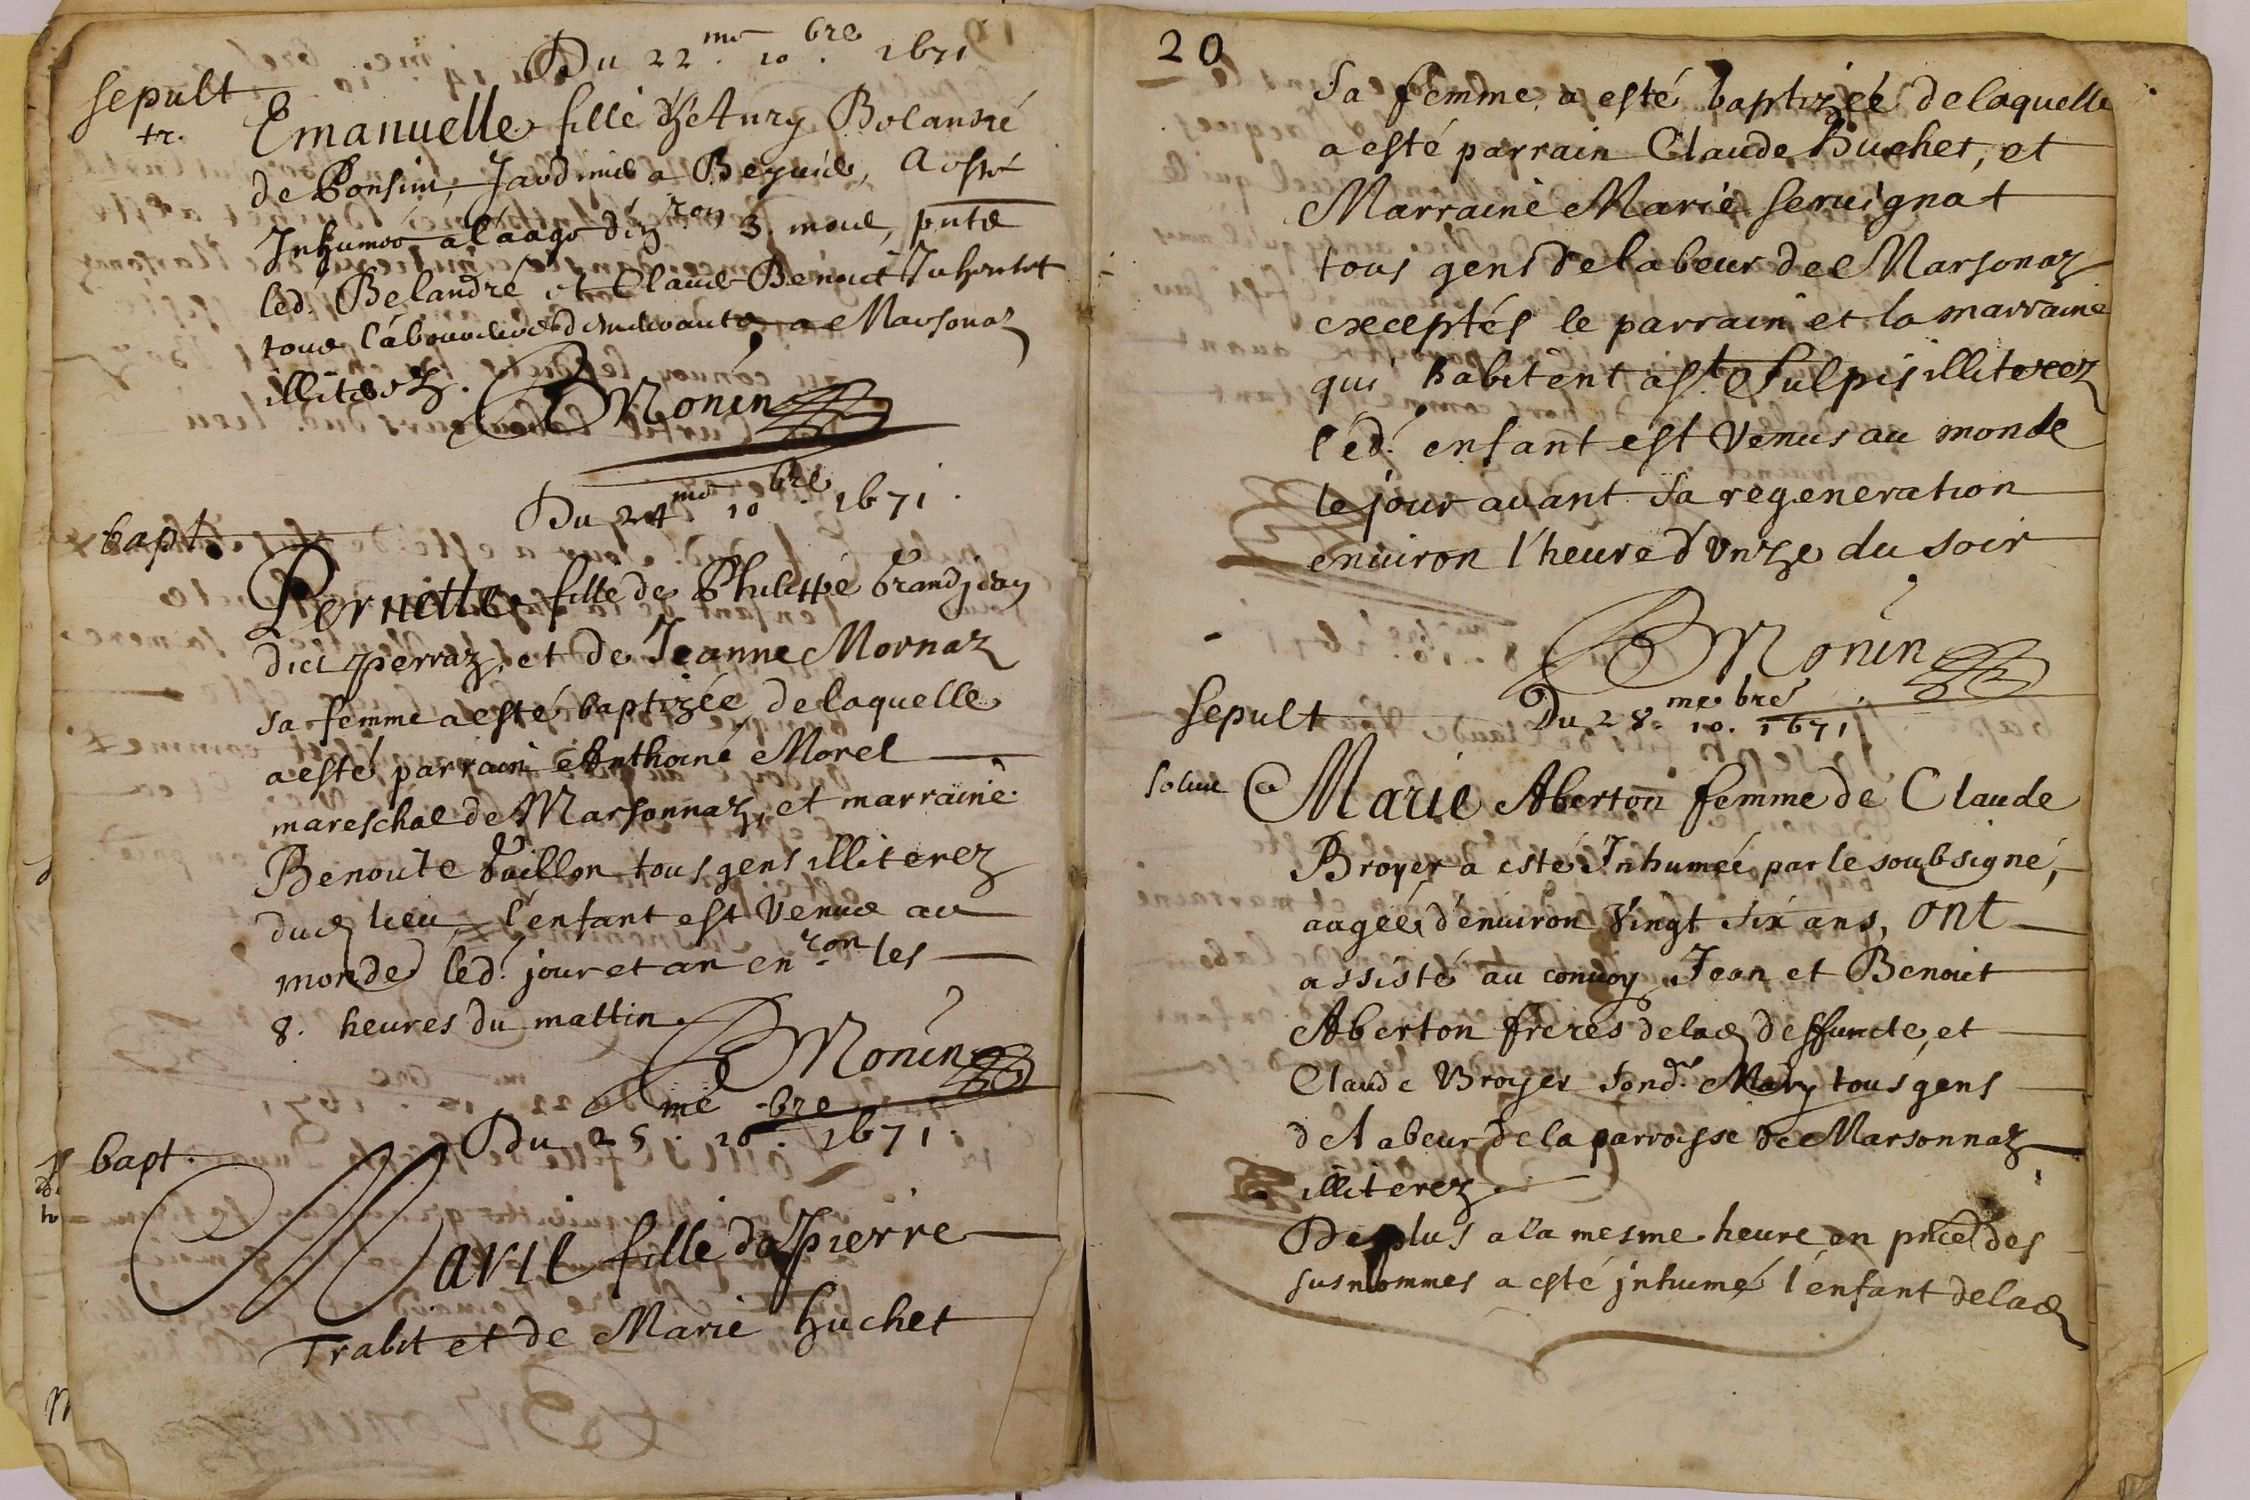 Du 22.me 10.bre 1671
sepult
tr.
Emanuelle fille d'hetury Bolandré
de Ponsin, a esté
Inhumée a l'aage d'en.ron 3. mois, pnts
led. Belandré et Claude Benoict
tous a Marsonaz
illiterez.
Monin
Du 24.me 10.bre 1671.
bapt.
Pernette fille de Philippe Grandjean
dict perraz, et de Jeanne Mornaz
sa femme a esté baptizée de laquelle
a esté parrain Anthoine Morel
mareschal de Marsonnaz, et marraine
Benoite Vaillon tous gens illiterez
dud lieu, l'enfant est Venue au
monde led. jour et an en.ron les
8. heures du mattin.
Monin
Du 25.me 10.bre 1671.
bapt.
Marie fille de pierre
Trabit et de Marie huchet
20
Sa femme, a esté baptizée de laquelle
a esté parrain Claude huchet, et
Marraine Marie Seruignat
tous gens de labeur de Marsonaz
exceptés le parrain et la marraine
qui habitent a St. Sulpis illiterez
led. enfant est Venus au monde
le jour auant sa regeneration
enuiron l'heure d'Unze du soir
Monin
sepult
Du 28.me 10.bre 1671
solue
Marie Aberton femme de Claude
Broyer a esté Inhumée par le soubsigné,
aagée d'enuiron Vingt six ans, ont
assisté au conuoy Jean et Benoit
Aberton freres de lad deffuncte, et
Claude Broyer sond. Mary tous gens
de labeur de la parroisse de Marsonnaz
illiterez.
De plus a la mesme heure en pnce des
susnommes a esté jnhumé l'enfant de lad